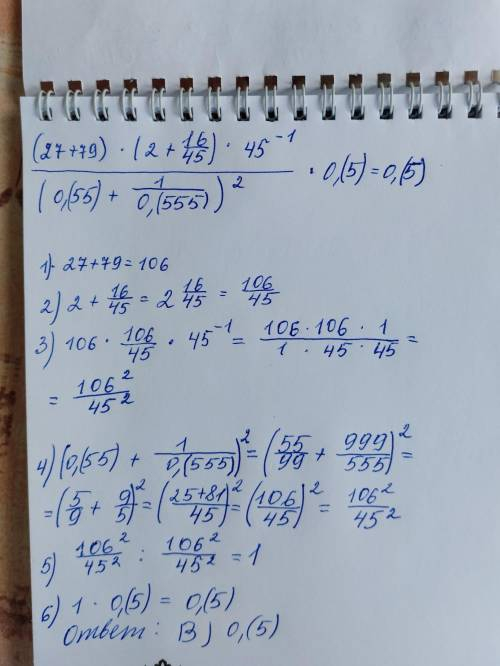 (27+79) · (2 + 16/45) · 45⁻¹ / (0,(55) + 1/0,(555))² · 0,(5) = 0,(5)
1) 27+79=106
2) 2 + 16/45 = 2 16/45 = 106/45
3) 106 · 106/45 · 45⁻¹ = 106 · 106 · 1 / 1 · 45 · 45 =
= 106²/45²
4) (0,(55) + 1/0,(555))² = (55/99 + 999/555)² =
= (5/9 + 9/5)² = (25+81/45)² = (106/45)² = 106²/45²
5) 106²/45² : 106²/45² = 1
6) 1 · 0,(5) = 0,(5)
Ответ: B) 0,(5)